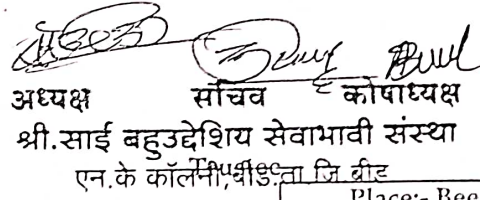 अध्यक्ष सचिव कोषाध्यक्ष
श्री.साई बहुउद्देशिय सेवाभावी संस्था
एन.के कॉलनी,बीड.ता.जि.बीड
Trustee
Place:- Bee